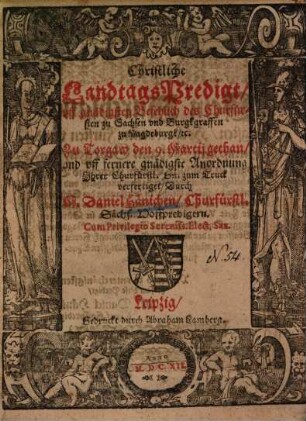 Christliche
LandtagsPredigt/
vff gnädigsten Befehlich des Churfür-
sten zu Sachsen vnd Burggraffen
zu Magdeburgk/ ꝛc.
Zu Torgaw den 9. Martij gethan/
vnd vff fernere gnädigste Anordnung
Ihrer Churfürstl. Gn. zum Truck
verfertiget/ Durch
M. Daniel Hänichen/ Churfürstl.
Sächs. Hoffpredigern.
Cum Privilegio Sereniss: Elect. Sax.
N.º 54
Leipzig/
Gedruckt durch Abraham Lamberg.
Anno
M. DC. XII.